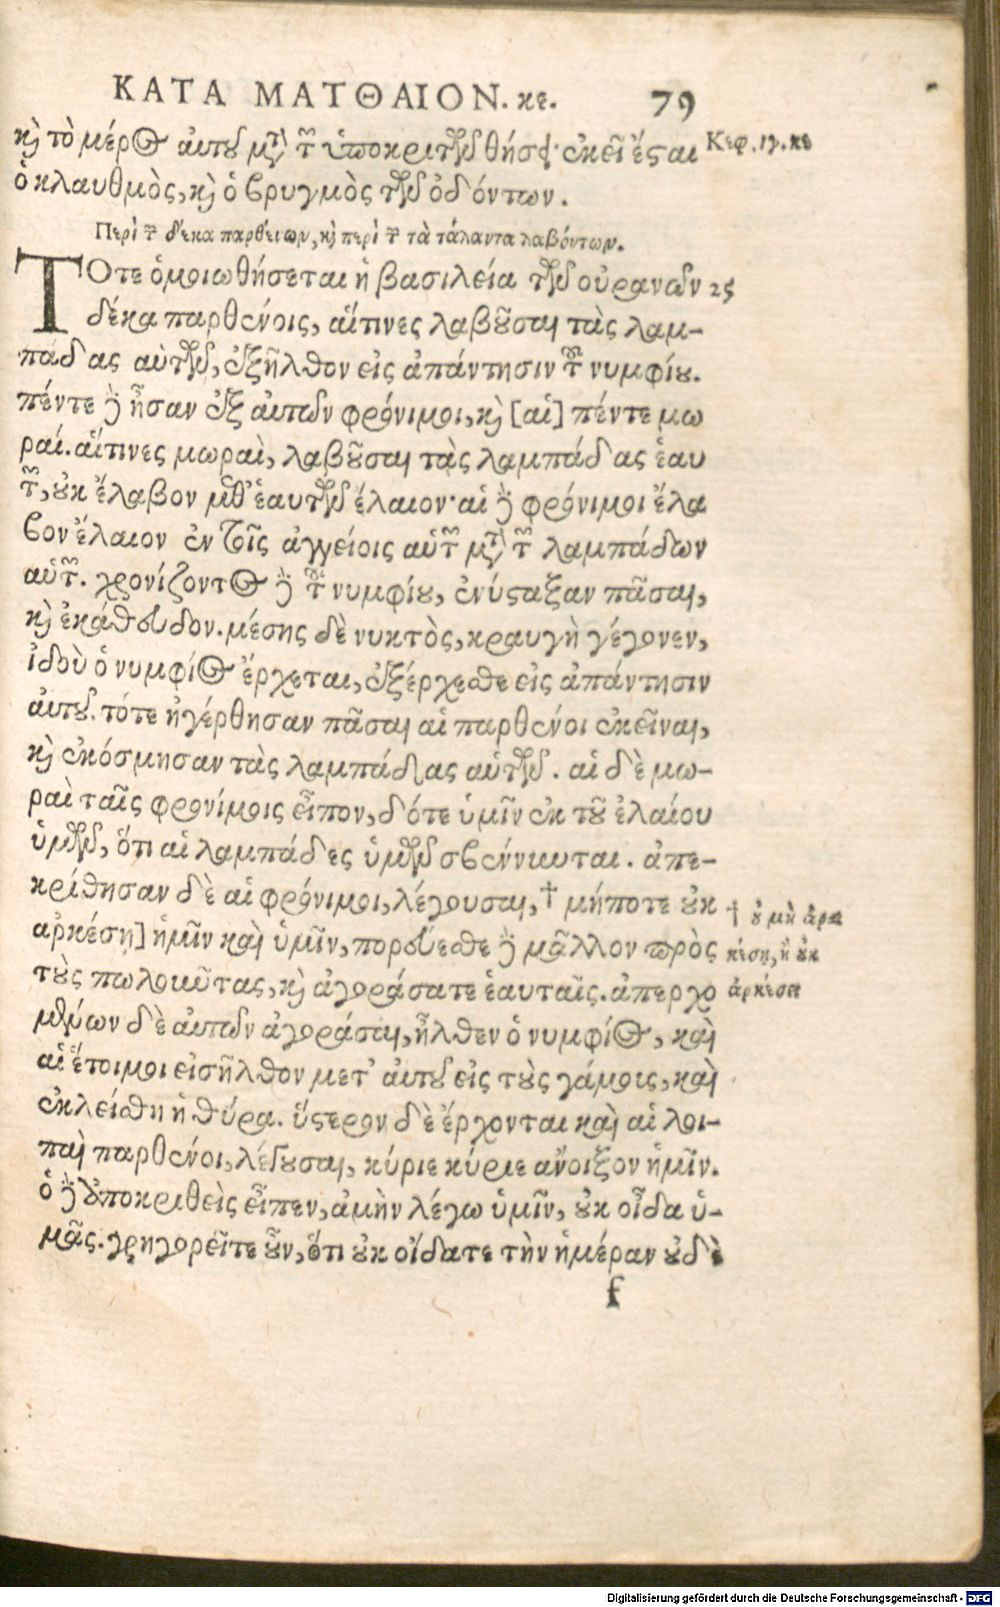 ΚΑΤΑ ΜΑΤΘΑΙΟΝ. κε. 79
καὶ τὸ μέρος αὐτοῦ μετὰ τῶν ὑποκριτῶν θήσει· ἐκεῖ ἔσται Κεφ. ιγ. κε
ὁ κλαυθμὸς, καὶ ὁ βρυγμὸς τῶν ὀδόντων.
Περὶ τῶν δέκα παρθένων, καὶ περὶ τῶν τὰ τάλαντα λαβόντων.
ΤΟτε ὁμοιωθήσεται ἡ βασιλεία τῶν οὐρανῶν 25
δέκα παρθένοις, αἵτινες λαβοῦσαι τὰς λαμ-
πάδας αὐτῶν, ἐξῆλθον εἰς ἀπάντησιν τοῦ νυμφίου.
πέντε δὲ ἦσαν ἐξ αὐτῶν φρόνιμοι, καὶ [αἱ] πέντε μω
ραί. αἵτινες μωραὶ, λαβοῦσαι τὰς λαμπάδας ἑαυ
τῶν, οὐκ ἔλαβον μεθ' ἑαυτῶν ἔλαιον· αἱ δὲ φρόνιμοι ἔλα
βον ἔλαιον ἐν τοῖς ἀγγείοις αὐτῶν μετὰ τῶν λαμπάδων
αὐτῶν. χρονίζοντος δὲ τοῦ νυμφίου, ἐνύσταξαν πᾶσαι,
καὶ ἐκάθευδον. μέσης δὲ νυκτὸς, κραυγὴ γέγονεν,
ἰδοὺ ὁ νυμφίος ἔρχεται, ἐξέρχεσθε εἰς ἀπάντησιν
αὐτοῦ. τότε ἠγέρθησαν πᾶσαι αἱ παρθένοι ἐκεῖναι,
καὶ ἐκόσμησαν τὰς λαμπάδας αὐτῶν. αἱ δὲ μω-
ραὶ ταῖς φρονίμοις εἶπον, δότε ὑμῖν ἐκ τοῦ ἐλαίου
ὑμῶν, ὅτι αἱ λαμπάδες ὑμῶν σβέννυνται. ἀπε-
κρίθησαν δὲ αἱ φρόνιμοι, λέγουσαι, † μήποτε οὐκ † οὐ μὴ ἀρκ
αρκέσῃ] ἡμῖν καὶ ὑμῖν, πορεύεσθε δὲ μᾶλλον πρὸς κέσῃ, ἢ οὐκ
τοὺς πωλοῦντας, καὶ ἀγοράσατε ἑαυταῖς. ἀπερχο ἀρκέσει
μένων δὲ αὐτῶν ἀγοράσαι, ἦλθεν ὁ νυμφίος, καὶ
αἱ ἕτοιμοι εἰσῆλθον μετ' αὐτοῦ εἰς τοὺς γάμους, καὶ
ἐκλείσθη ἡ θύρα. ὕστερον δὲ ἔρχονται καὶ αἱ λοι-
παὶ παρθένοι, λέγουσαι, κύριε κύριε ἄνοιξον ἡμῖν.
ὁ δὲ ἀποκριθεὶς εἶπεν, ἀμὴν λέγω ὑμῖν, οὐκ οἶδα ὑ-
μᾶς. γρηγορεῖτε οὖν, ὅτι οὐκ οἴδατε τὴν ἡμέραν οὐδὲ
f
Digitalisierung gefördert durch die Deutsche Forschungsgemeinschaft - DFG